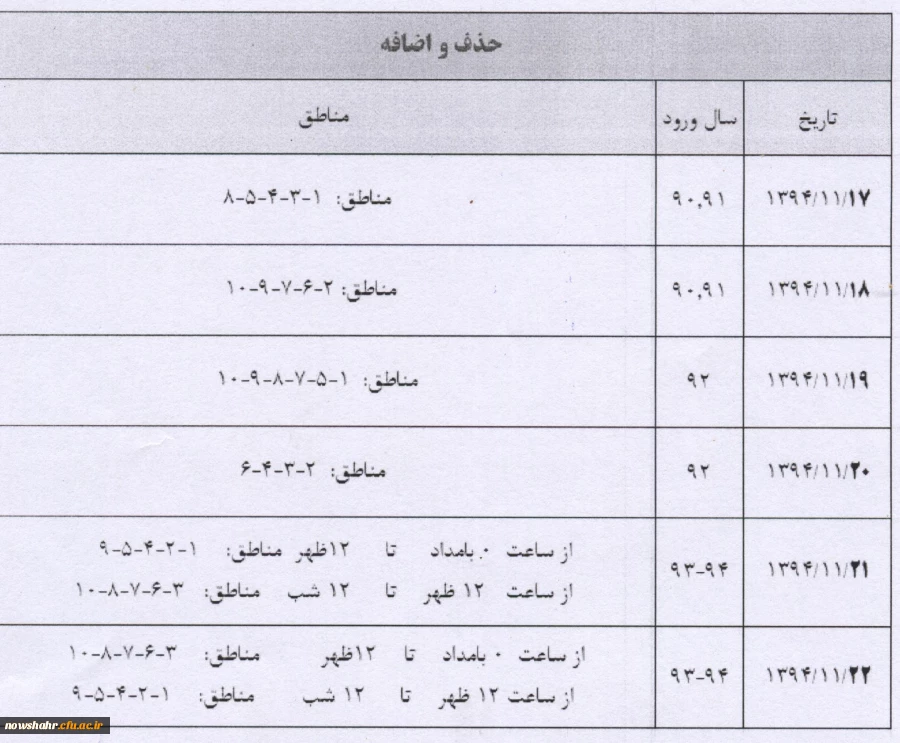 حذف و اضافه
تاریخ سال ورود مناطق
۱۳۹۴/۱۱/۱۷ ۹۰,۹۱ مناطق: ۱-۳-۴-۵-۸
۱۳۹۴/۱۱/۱۸ ۹۰,۹۱ مناطق: ۲-۶-۷-۹-۱۰
۱۳۹۴/۱۱/۱۹ ۹۲ مناطق: ۱-۵-۷-۸-۹-۱۰
۱۳۹۴/۱۱/۲۰ ۹۲ مناطق: ۲-۳-۴-۶
۱۳۹۴/۱۱/۲۱ ۹۳-۹۴ از ساعت ۰ بامداد تا ۱۲ظهر مناطق: ۱-۲-۴-۵-۹
از ساعت ۱۲ ظهر تا ۱۲ شب مناطق: ۳-۶-۷-۸-۱۰
۱۳۹۴/۱۱/۲۲ ۹۳-۹۴ از ساعت ۰ بامداد تا ۱۲ظهر مناطق: ۳-۶-۷-۸-۱۰
از ساعت ۱۲ ظهر تا ۱۲ شب مناطق: ۱-۲-۴-۵-۹
nowshahr.cfu.ac.ir